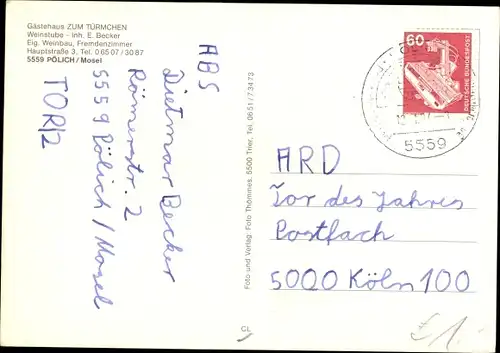 Gästehaus ZUM TÜRMCHEN
Weinstube - Inh. E. Becker
Eig. Weinbau, Fremdenzimmer
Hauptstraße 3, Tel. 0 65 07 / 30 87
5559 PÖLICH / Mosel
ABS
Dietmar Becker
Römerstr. 2
5559 Pölich / Mosel
TOR/2
Foto und Verlag: Foto Thömmes, 5500 Trier, Tel. 06 51 / 7 34 73
CL
60
DEUTSCHE BUNDESPOST
5559
ARD
Tor des Jahres
Postfach
5000 Köln 100
€ 1.